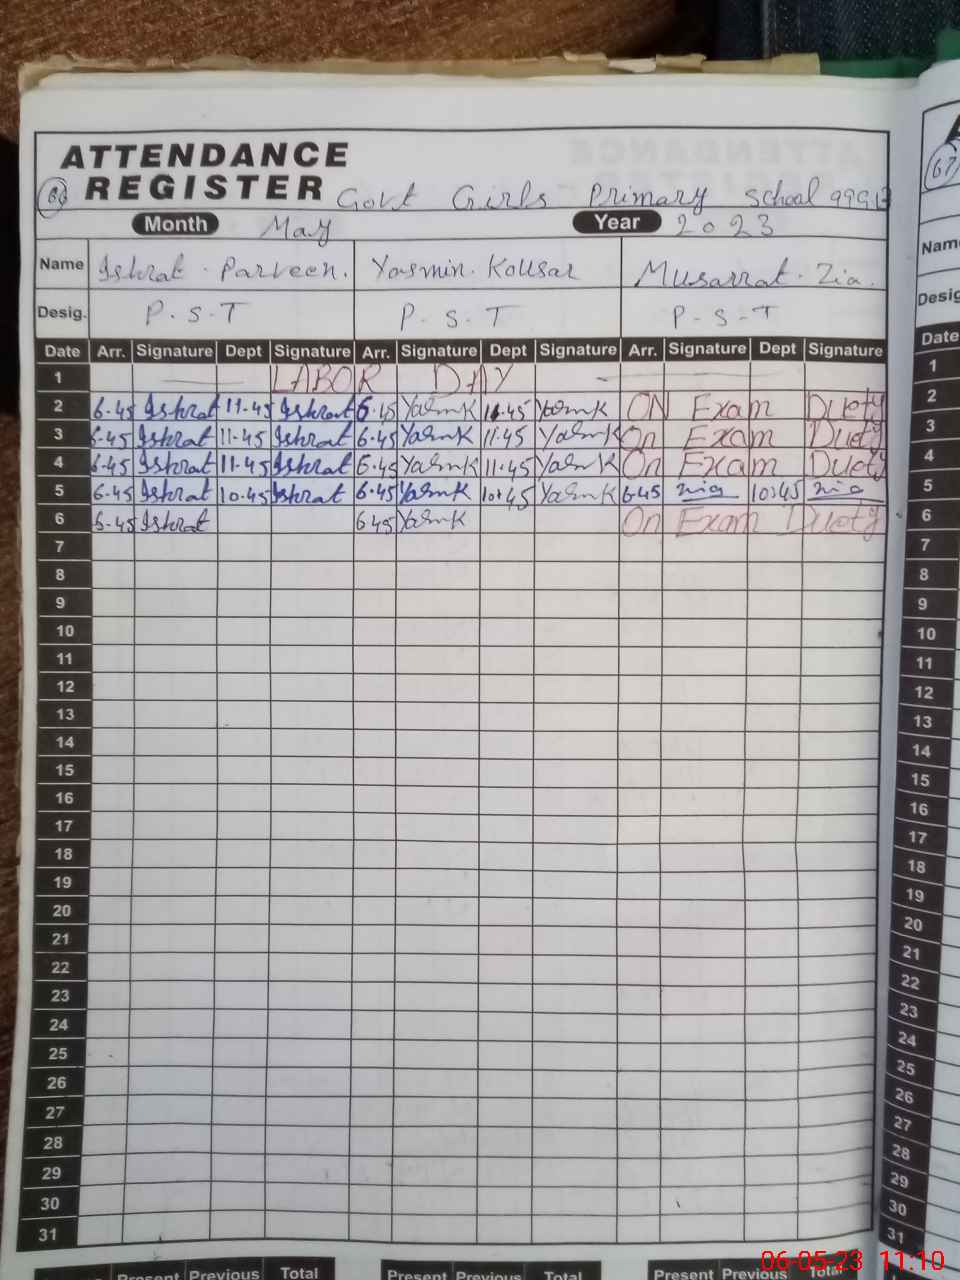 ATTENDANCE
REGISTER Govt Girls Primary School
Month May Year 2023
Name Ishrat . Parveen. Yasmin. Kousar Musarrat . Zia.
Desig. P . S . T P - S . T P - S - T
Date Arr. Signature Dept Signature Arr. Signature Dept Signature Arr. Signature Dept Signature
1 LABOR DAY
2 6.45 Ishrat 11.45 Ishrat 6.45 YasmK 11.45 YasmK ON Exam Duoty
3 6.45 Ishrat 11.45 Ishrat 6.45 YasmK 11.45 YasmK On Exam Duoty
4 6.45 Ishrat 11.45 Ishrat 6.45 YasmK 11.45 YasmK On Exam Duoty
5 6.45 Ishrat 10.45 Ishrat 6.45 YasmK 10:45 YasmK 6.45 zia 10:45 zia
6 6.45 Ishrat 6 45 YasmK On Exam Duoty
7
8
9
10
11
12
13
14
15
16
17
18
19
20
21
22
23
24
25
26
27
28
29
30
31
Present Previous Total Present Previous Total Present Previous Total
67
Name
Desig
Date
1
2
3
4
5
6
7
8
9
10
11
12
13
14
15
16
17
18
19
20
21
22
23
24
25
26
27
28
29
30
31
06-05-23 11:10